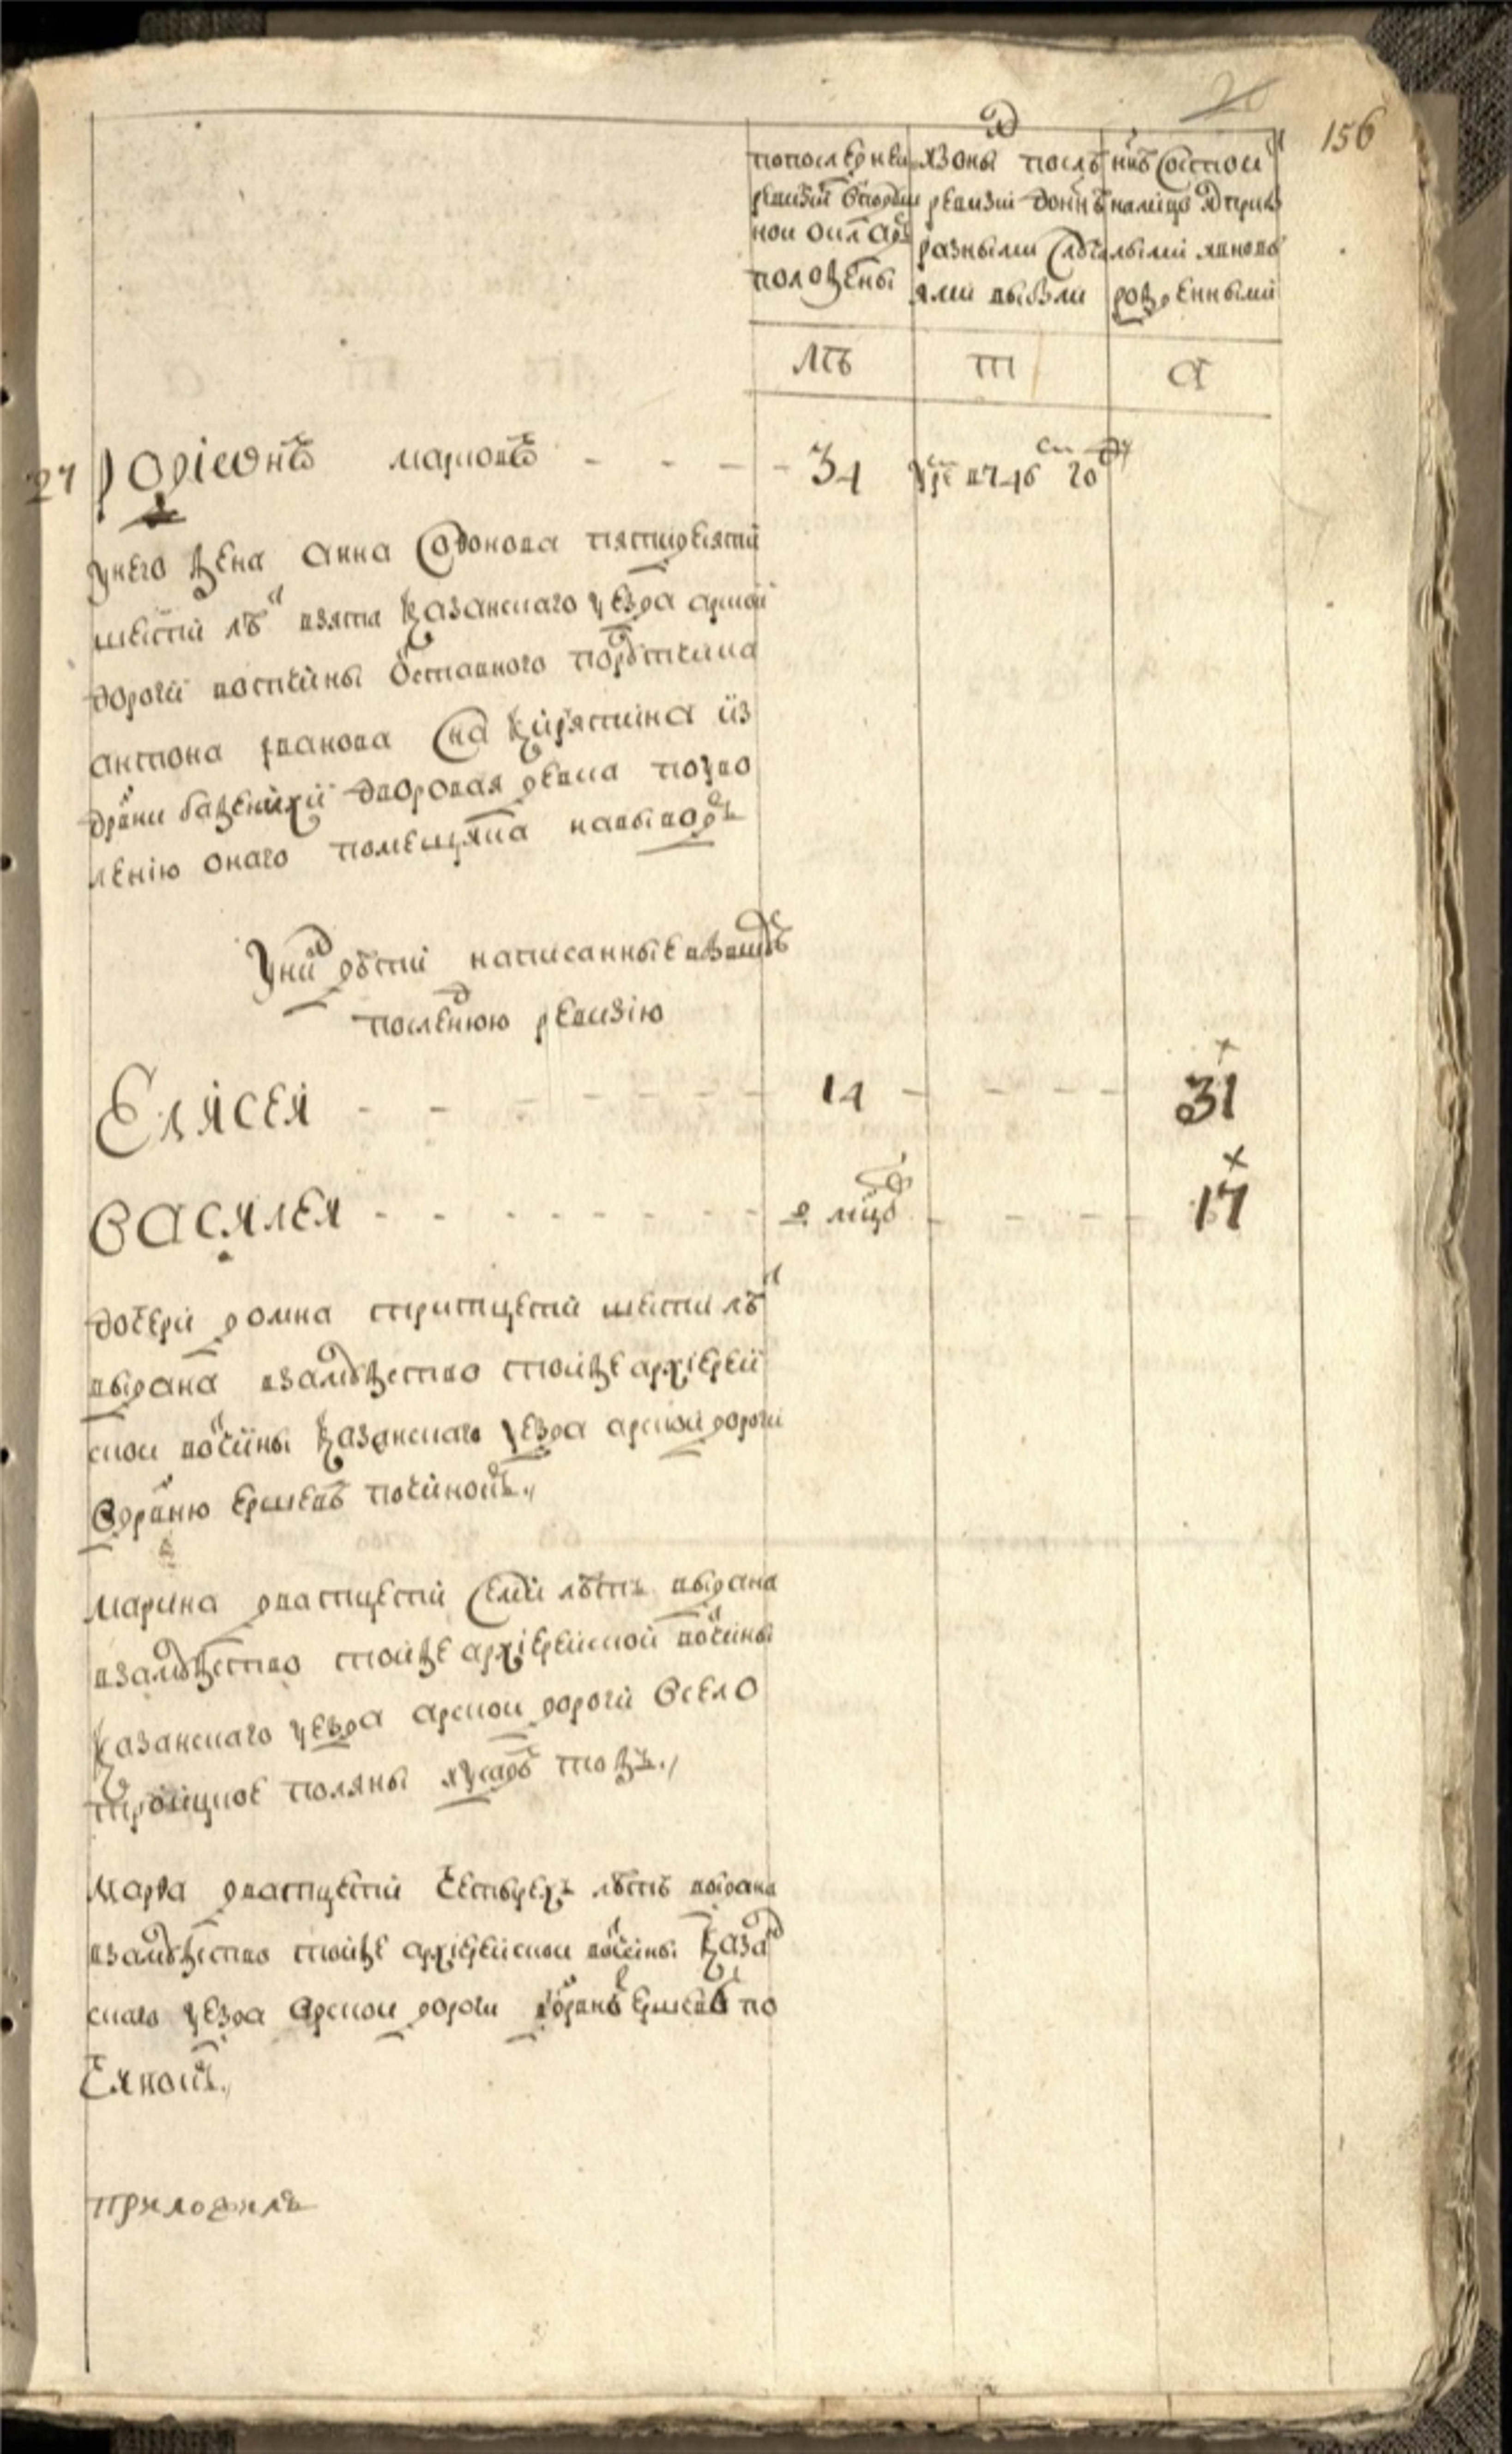 156
по последней
ревизии в подуш
ной оклад
положены
из оных после
ревизии до ныне
разными случа
ями выбыли
ныне состоит
налицо с прибы
лыми и вновь
рожденными
летъ
летъ
27 родионъ марковъ - - - 34 умре в 746 году
у него жена анна сафонова пятидесяти
шести летъ взята казанского уезда арской
дороги вотчины отставного порутчика
антона иванова сна
деревни дворовая девка по позво
лению оного помещика на выводъ
у них дети написанные в бывшую
последнюю ревизию
Елисей - - - 14 - - - 31
Василей - - - 2 мцовъ - - - 17
дочери домна тритцети шести летъ
выдана в замужество той же архиерей
ской вотчины казанского уезда арской дороги
в деревню починокъ
марина дватцети семи летъ выдана
в замужество той же архиерейской вотчины
казанского уезда арской дороги в село
троицкое поляны тожъ
марфа дватцети четырехъ летъ выдана
в замужество той же архиерейской вотчины казан
ского уезда арской дороги в деревню по
чинокъ
приложилъ